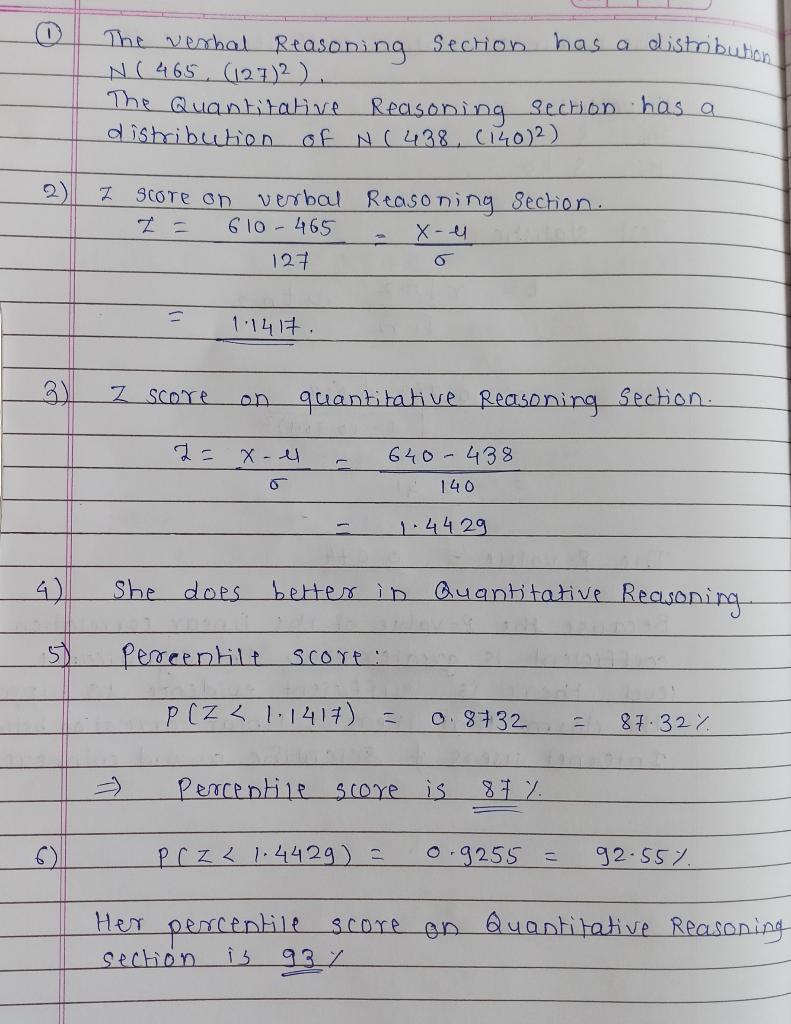 ① The verbal Reasoning Section has a distribution
N( 465, (127)2 ).
The Quantitative Reasoning section has a
distribution of N ( 438, (140)2)
2) Z score on verbal Reasoning Section.
Z = 610 - 465 = X-μ
127 σ
= 1.1417.
3) Z score on quantitative Reasoning Section.
Z = X-μ = 640 - 438
σ 140
= 1.4429
4) She does better in Quantitative Reasoning.
5) Percentile score:
P(Z < 1.1417) = 0.8732 = 87.32%
⇒ Percentile score is 87 %.
6) P(Z < 1.4429) = 0.9255 = 92.55%.
Her percentile score on Quantitative Reasoning
section is 93 %